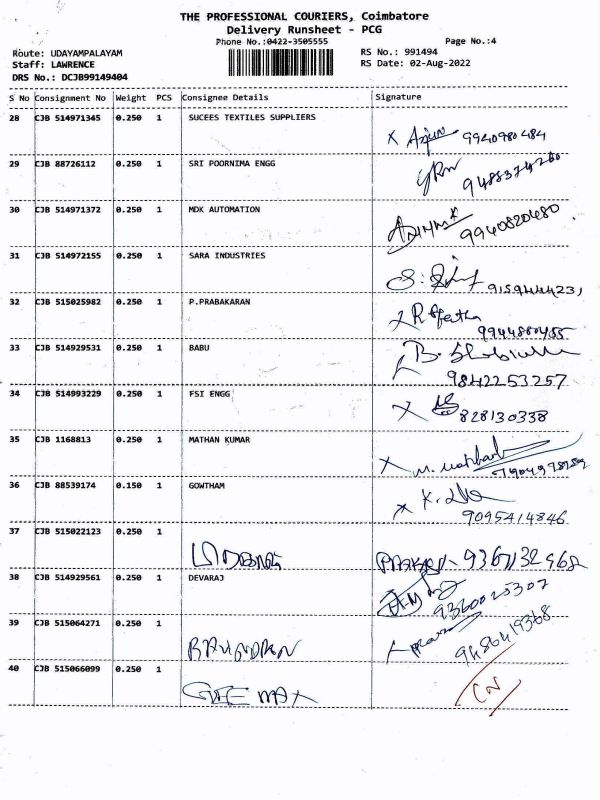 THE PROFESSIONAL COURIERS, Coimbatore
Delivery Runsheet - PCG
Phone No.:0422-3505555 Page No.:4
Route: UDAYAMPALAYAM RS No.: 991494
Staff: LAWRENCE RS Date: 02-Aug-2022
DRS No.: DCJB99149404
S No Consignment No Weight PCS Consignee Details Signature
28 CJB 514971345 0.250 1 SUCEES TEXTILES SUPPLIERS
x Arjun 9940980484
29 CJB 88726112 0.250 1 SRI POORNIMA ENGG
30 CJB 514971372 0.250 1 MDK AUTOMATION
9940820480
31 CJB 514972155 0.250 1 SARA INDUSTRIES
9159444231
32 CJB 515025982 0.250 1 P.PRABAKARAN
9944880455
33 CJB 514929531 0.250 1 BABU
9842253257
34 CJB 514993229 0.250 1 FSI ENGG
x 828130338
35 CJB 1168813 0.250 1 MATHAN KUMAR
x M.
36 CJB 88539174 0.150 1 GOWTHAM
x K.
9095414846
37 CJB 515022123 0.250 1
38 CJB 514929561 0.250 1 DEVARAJ
9360025307
39 CJB 515064271 0.250 1
9486419368
40 CJB 515066099 0.250 1
CN